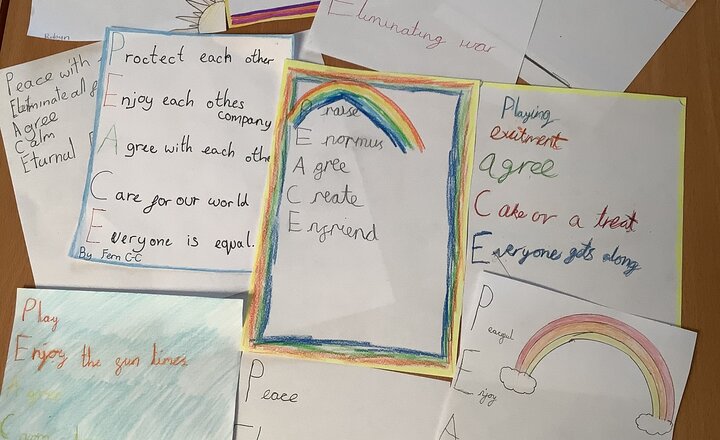 Robyn
Eliminating war
Peace with
Eleminate all
Agree
Calm
Eturnal
Proctect each other
Enjoy each othes
company
Agree with each othe
Care for our world
Everyone is equal.
By Fern C-C
Praise
Enormus
Agree
Create
Enfriend
Playing
exitment
agree
Cake or a treat
Everyone gets along
Play
Enjoy the gun times
Agree
Peace
Peacgul
Enjoy
A